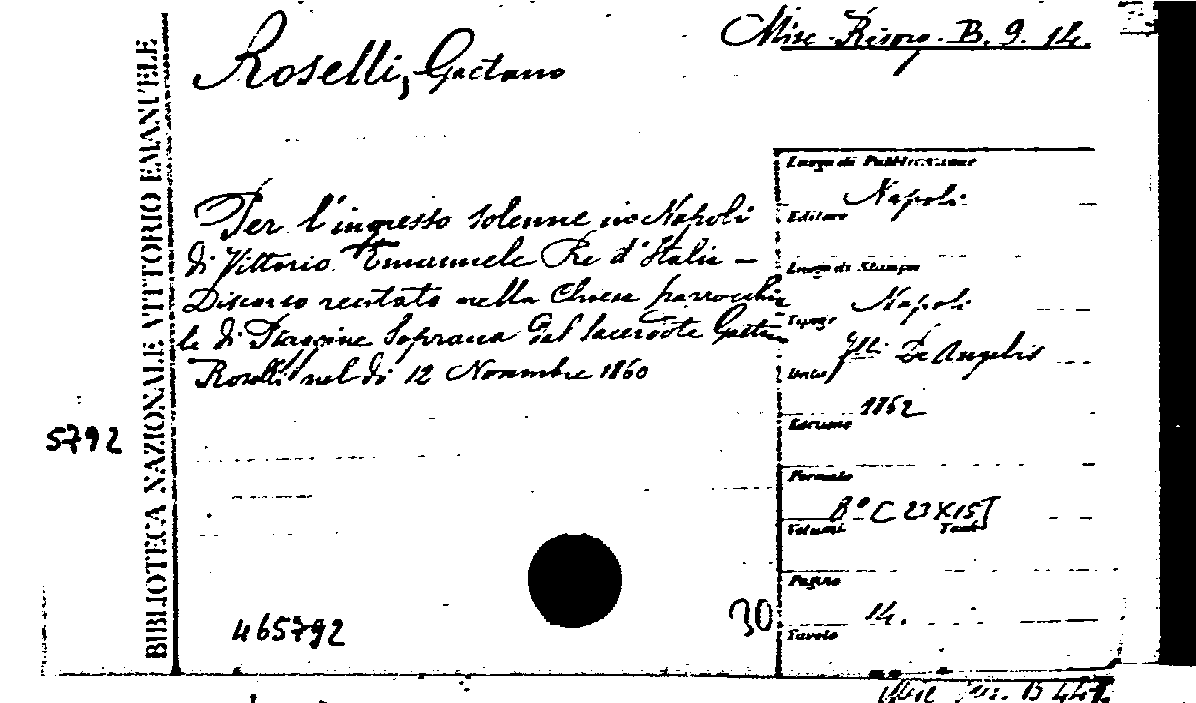 Roselli, Gaetano
Misc. Risorg. B. 9. 14.
BIBLIOTECA NAZIONALE VITTORIO EMANUELE
Per l'ingresso solenne in Napoli
di Vittorio Emanuele Re d'Italia –
Discorso recitato nella Chiesa parrocchia
le di Soprana dal sacerdote Gaetano
Roselli nel dì 12 Novembre 1860
5792
465792
30
Luogo di Pubblicazione
Napoli
Editore
Luogo di Stampa
Napoli
Tipogr
De Angelis
Data
1862
Estremo
Formato
8° C 23X15]
Volumi Tomi
Pagine
14.
Tavole
Misc. B 447